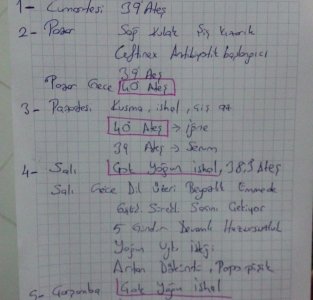 1- Cumartesi 39 Ateş
2- Pazar Sağ Kulak Şiş Kızarık
Ceftinex Antibiyotik başlangıcı
39 Ateş
Pazar Gece 40 Ateş
3- Pazartesi Kusma, ishal, çiş az
40 Ateş → iğne
39 Ateş → Serum
4- Salı Çok Yoğun ishal, 38,5 Ateş
Salı Gece Dil Üzeri Beyazlık Emmede
Sürekli Sesini Çekiyor
5 Gündür Devamlı Huzursuzluk
Yoğun Uyku isteği
Artan Döküntü, Popo pişik
5- Çarşamba Çok Yoğun ishal